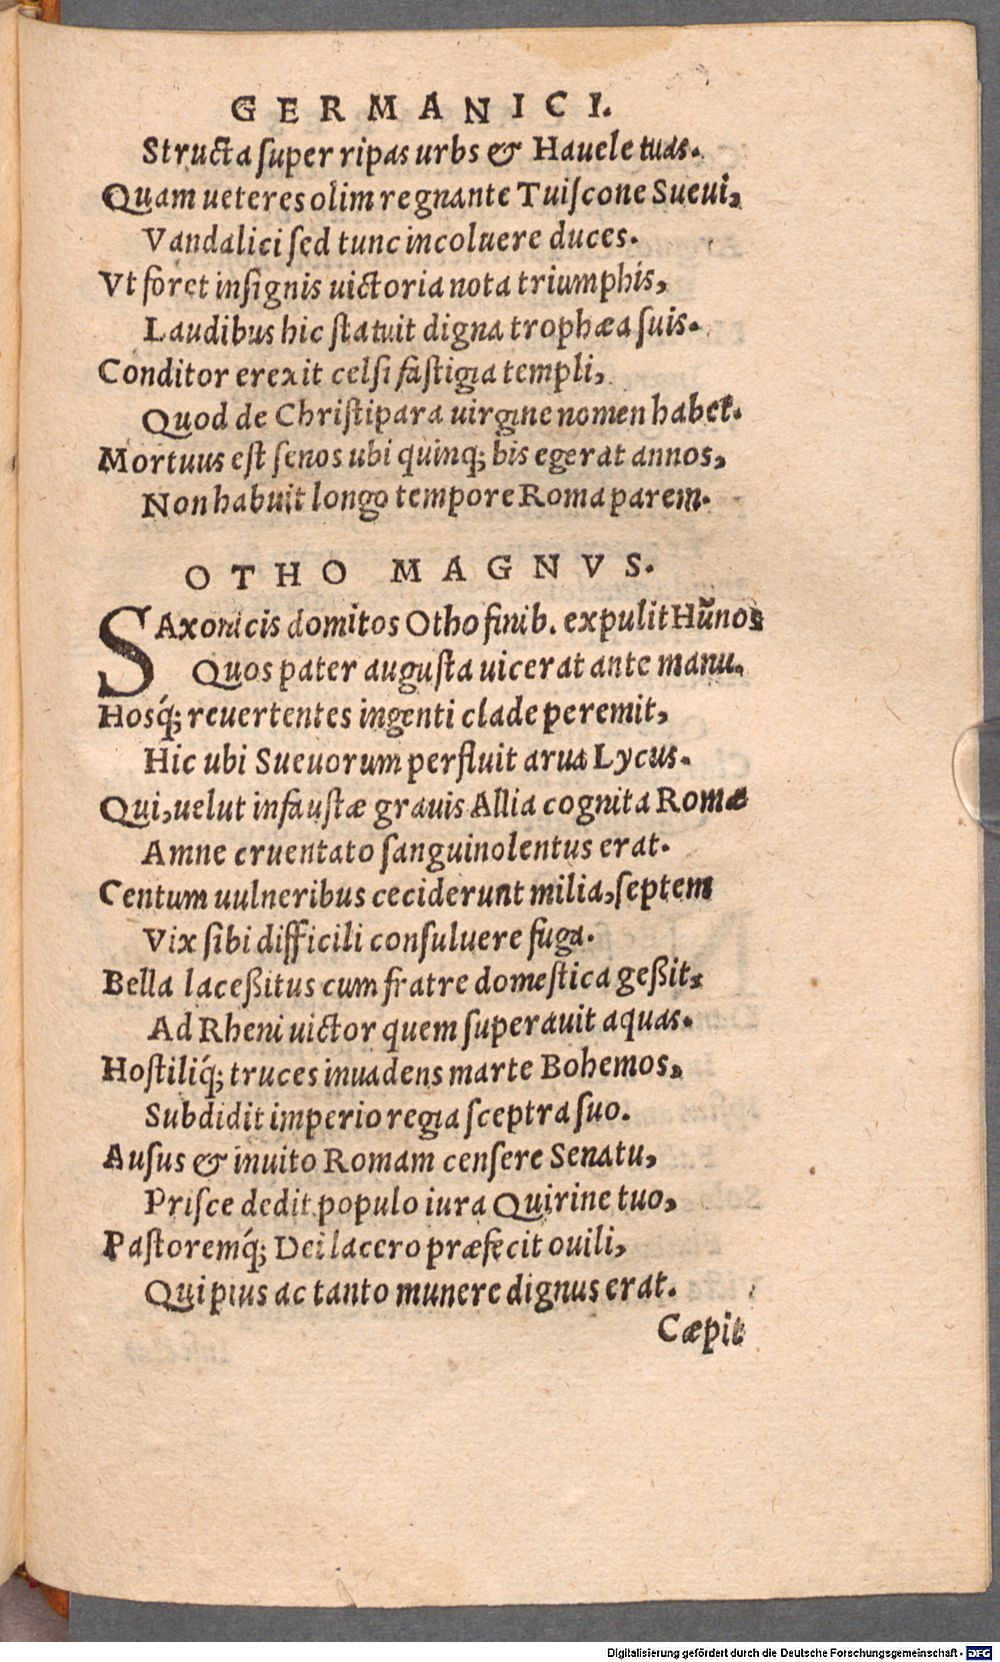 GERMANICI.
Structa ſuper ripas urbs & Hauele tuas.
Quam ueteres olim regnante Tuiſcone Sueui,
Vandalici ſed tunc incoluere duces.
Vt foret inſignis uictoria nota triumphis,
Laudibus hic ſtatuit digna trophæa ſuis.
Conditor erexit celſi faſtigia templi,
Quod de Chriſtipara uirgine nomen habet.
Mortuus eſt ſenos ubi quinq; bis egerat annos,
Non habuit longo tempore Roma parem.
OTHO MAGNVS.
SAxonicis domitos Otho finib. expulit Hūnos
Quos pater auguſta uicerat ante manu.
Hosq́; reuertentes ingenti clade peremit,
Hic ubi Sueuorum perfluit arua Lycus.
Qui, uelut infauſtæ grauis Allia cognita Romæ
Amne cruentato ſanguinolentus erat.
Centum uulneribus ceciderunt milia, ſeptem
Vix ſibi difficili conſuluere fuga.
Bella laceßitus cum fratre domeſtica geßit,
Ad Rheni uictor quem ſuperauit aquas.
Hoſtiliq́; truces inuadens marte Bohemos,
Subdidit imperio regia ſceptra ſuo.
Auſus & inuito Romam cenſere Senatu,
Priſce dedit populo iura Quirine tuo,
Paſtoremq́; Dei lacero præfecit ouili,
Qui pius ac tanto munere dignus erat.
Cæpit
Digitalisierung gefördert durch die Deutsche Forschungsgemeinschaft - DFG